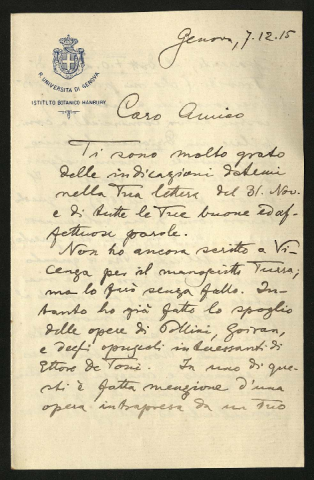 Genova, 7.12.15
R. UNIVERSITÀ DI GENOVA
ISTITUTO BOTANICO HANBURY
Caro Amico
Ti sono molto grato
delle indicazioni datemi
nella Tua lettera del 31. Nov.
e di tutte le Tue buone ed af-
fettuose parole.
Non ho ancora scritto a Vi-
cenza per il manoscritto Turra;
ma lo farò senza fallo. In-
tanto ho già fatto lo spoglio
delle opere di Pollini, Goiran,
e degli opuscoli interessanti di
Ettore De Toni. In uno di que-
sti è fatta menzione d'una
opera intrapresa da un Tuo